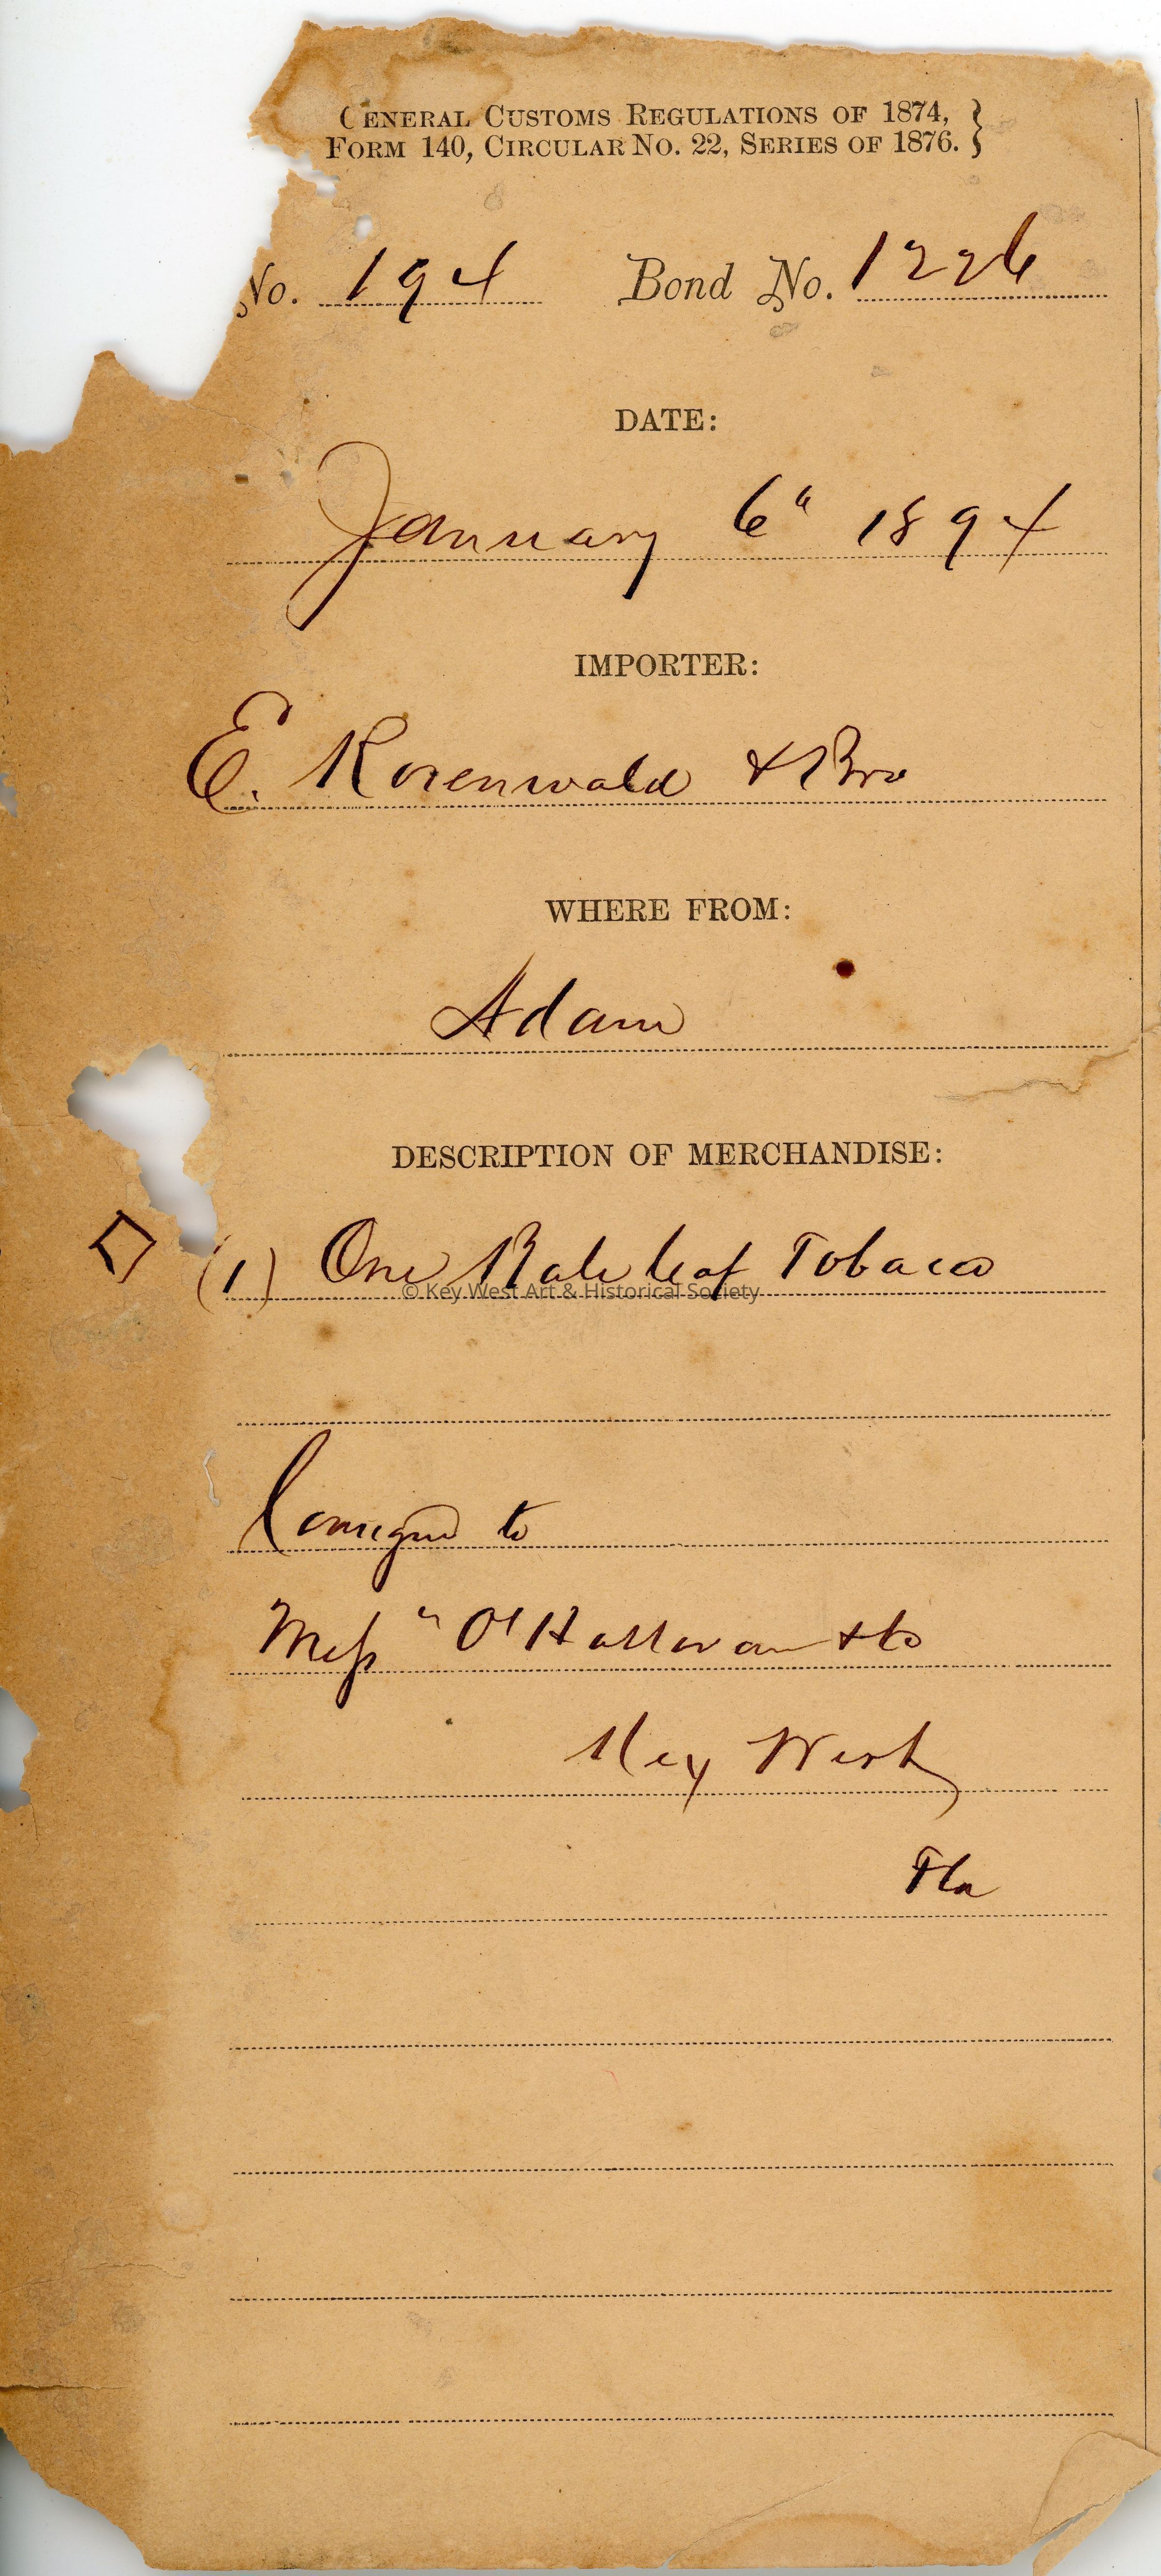 GENERAL CUSTOMS REGULATIONS OF 1874,
FORM 140, CIRCULAR NO. 22, SERIES OF 1876.
No. 194 Bond No. 1226
DATE:
January 6" 1894
IMPORTER:
E. Rosenwald & Bro
WHERE FROM:
Adam
DESCRIPTION OF MERCHANDISE:
(1) One Bale leaf Tobacco
© Key West Art & Historical Society
Consigned to
Mess" O'Halloran & Co
Key West
Fla